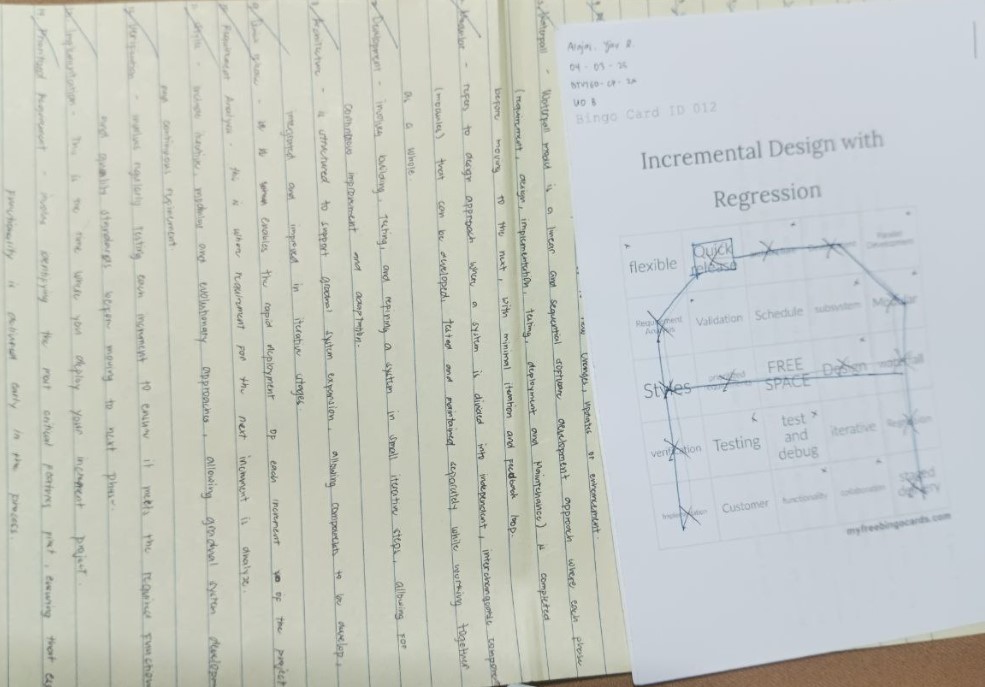 04 - 03 - 25
Bingo Card ID 012
Incremental Design with
Regression
flexible
Quick
Validation
Schedule
subsystem
Styles
FREE
SPACE
Design
verification
Testing
test
and
debug
iterative
Customer
functionality
myfreebingocards.com
changes, updates or enhancement.
Waterfall - Waterfall model is a linear and sequential software development approach where each phase
(requirement, design, implementation, testing, deployment and Maintenance) is completed
before moving to the next, with minimal iteration and feedback loop.
Modular - refers to design approach where a system is divided into independent, interchangeable component
(modules) that can be developed, tested and maintained separately while working together
as a whole.
Development - involves building, testing, and refining a system in small iterative steps, allowing for
continuous improvement and adaptation.
Architecture - is structured to support gradual system expansion, allowing components to be develop,
integrated and improved in iterative stages.
is when enables the rapid deployment of each increment of the project
Requirement Analysis - this is when requirement for the next increment is analyze.
Styles - include iterative, modular and evolutionary approaches, allowing gradual system developm
and continuous refinement.
Verification - involves regularly testing each increment to ensure it meets the required function
and quality standards before moving to next phase.
Implementation - This is the time where you deploy your increment project.
14. Prioritized Requirement - involves identifying the most critical features first, ensuring that es
functionality is delivered early in the process.